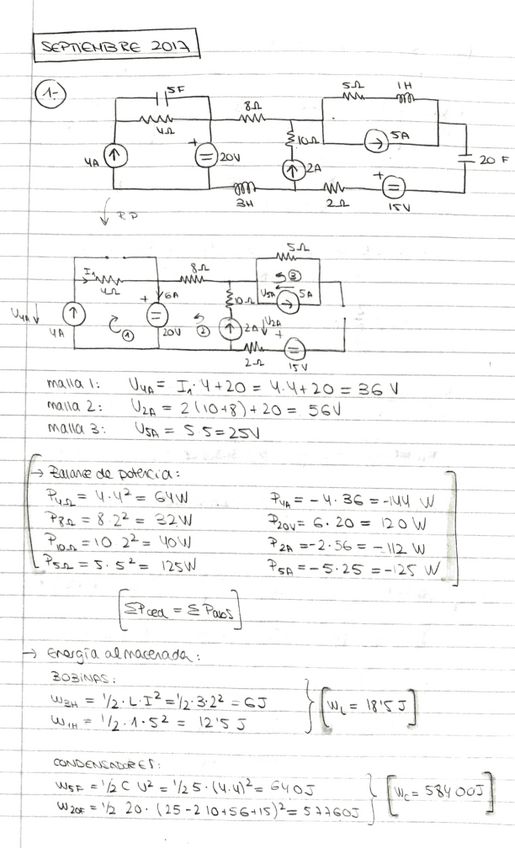 SEPTIEMBRE 2017
1-
5F
4Ω
8Ω
5Ω
1H
4A
+
20V
10Ω
5A
2A
20 F
3H
2Ω
+
15V
5Ω
I₁
4Ω
8Ω
3
U5A
5A
6A
10Ω
U4A
4A
+
20V
1
2
2A
U2A
+
2Ω
15V
malla 1: U4A = I₁·4+20 = 4·4+20 = 36 V
malla 2: U2A = 2(10+8)+20 = 56V
malla 3: U5A = 5·5=25V
→ Balance de potencia:
P4Ω = 4·4² = 64W P4A = -4·36 = -144 W
P8Ω = 8·2² = 32W P20V = 6·20 = 120 W
P10Ω = 10·2² = 40W P2A = -2·56 = -112 W
P5Ω = 5·5² = 125W P5A = -5·25 = -125 W
[ΣPced = ΣPabs]
→ Energía almacenada:
BOBINAS:
W3H = 1/2·L·I² = 1/2·3·2² = 6J
W1H = 1/2·1·5² = 12'5 J
[WL = 18'5 J]
CONDENSADORES:
W5F = 1/2 C U² = 1/2 5·(4·4)² = 640J
W20F = 1/2 20·(25-2·10+56+15)² = 57760J
[Wc = 58400J]